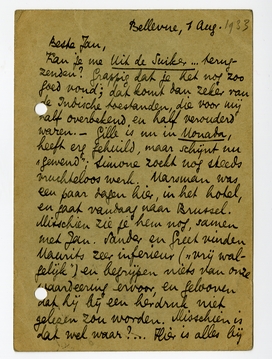 Bellevue, 1 Aug. 1933
Beste Jan,
Kan je me Uit de Suiker... terug-
zenden? Grappig dat je het nog zoo
goed vond; dat komt dan zeker van
de Indische toestanden, die voor mij
half overbekend, en half verouderd
waren. — Gille is nu in
heeft erg gehuild, maar schijnt nu
"gewend"; Simone zoekt nog steeds
vruchteloos werk. Marsman was
een paar dagen hier, in het hotel,
en gaat vandaag naar Brussel.
Misschien zie je hem nog, samen
met Jan. Sander en Greet vinden
Maurits zeer inferieur ("vrij wal-
gelijk") en begrijpen niets van onze
waardeering ervoor en gelooven
dat hij bij een herdruk niet
gelezen zou worden. Misschien is
dat wel waar?... Hier is alles bij